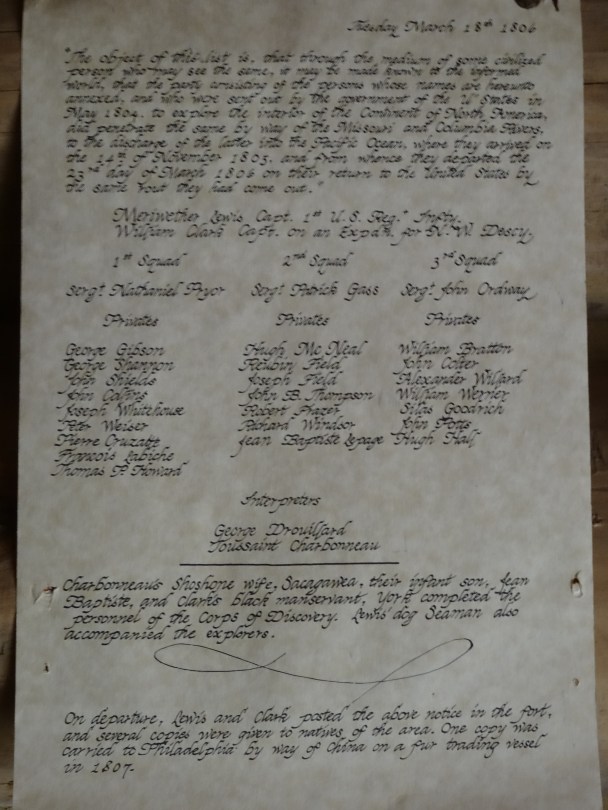 Tuesday March 18th 1806
"The object of this list is, that through the medium of some civilized
person who may see the same, it may be made known to the informed
world, that the party consisting of the persons whose names are hereunto
annexed, and who were sent out by the government of the U States in
May 1804. to explore the interior of the Continent of North America,
did penetrate the same by way of the Missouri and Columbia Rivers,
to the discharge of the latter into the Pacific Ocean, where they arrived on
the 14th of November 1805, and from whence they departed the
23rd day of March 1806 on their return to the United States by
the same rout they had come out."
Meriwether Lewis Capt. 1st U.S. Reg.t Infty.
William Clark Capt. on an Expdn. for N.W. Descy.
1st Squad 2nd Squad 3rd Squad
Sergt. Nathaniel Pryor Sergt. Patrick Gass Sergt. John Ordway
Privates Privates Privates
George Gibson Hugh Mc Neal William Bratton
George Shannon Reubin Field John Colter
John Shields Joseph Field Alexander Willard
John Collins John B. Thompson William Werner
Joseph Whitehouse Robert Frazer Silas Goodrich
Peter Weiser Richard Windsor John Potts
Pierre Cruzatte Jean Baptiste Lepage Hugh Hall
Francois Labiche
Thomas P. Howard
Interpreters
George Drouillard
Toussaint Charbonneau
Charbonneau's Shoshone wife, Sacagawea, their infant son, Jean
Baptiste, and Clark's black manservant, York completed the
personnel of the Corps of Discovery. Lewis' dog Seaman also
accompanied the explorers.
On departure, Lewis and Clark posted the above notice in the fort,
and several copies were given to natives of the area. One copy was
carried to Philadelphia by way of China on a fur trading vessel
in 1807.